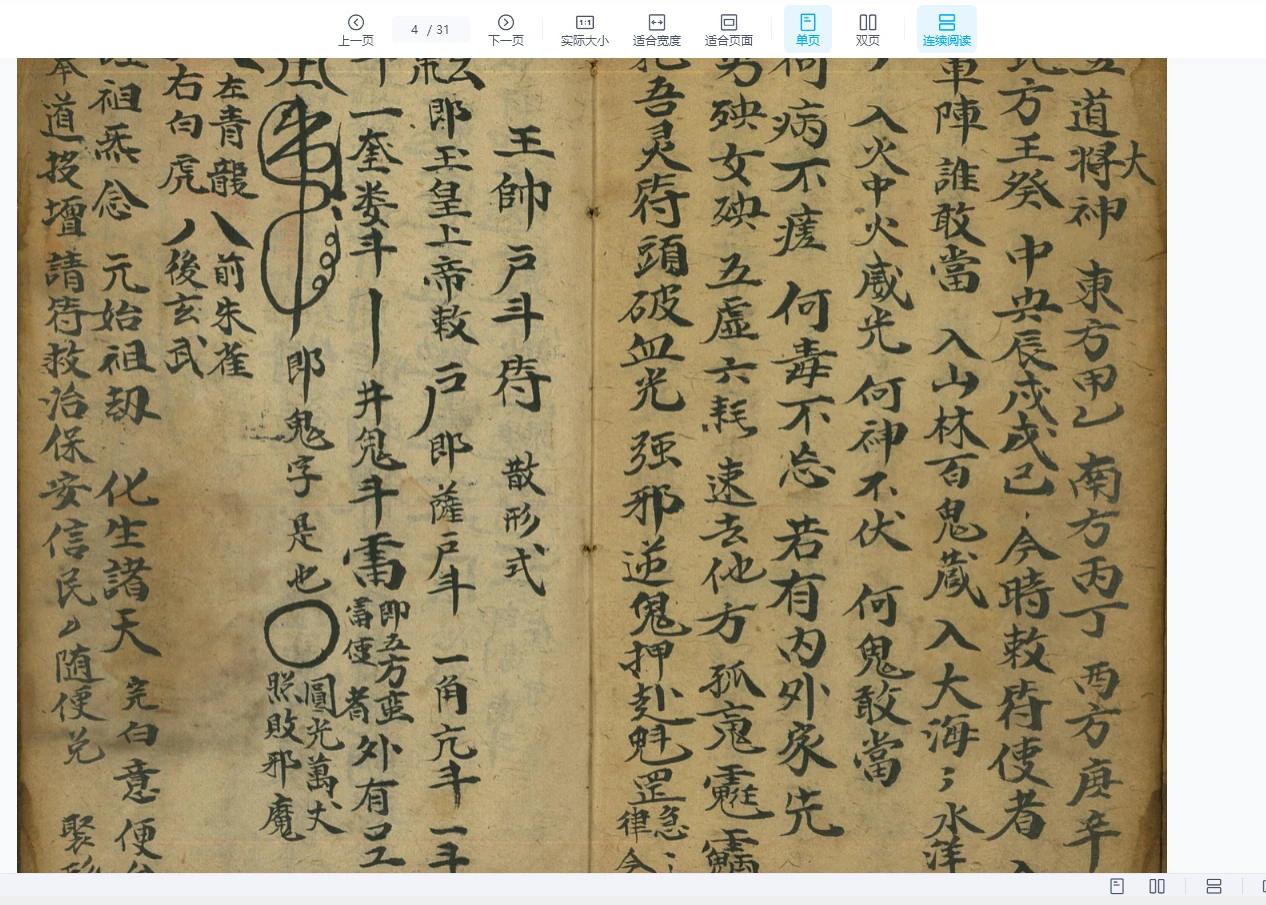 上一页
4 / 31
下一页
1:1
实际大小
适合宽度
适合页面
单页
双页
连续阅读
道將神 東方甲乙 南方丙丁 西方庚辛
大
方王癸 中央辰戌戌己 今時敕符使者 入
軍陣誰敢當 入山林百鬼藏 入大海ミ水洋
入火中火威光 何神不伏 何鬼敢當
何病不瘥 何毒不忩 若有内外家先
男殃女殃 五虚六耗 速去他方 孤
吾灵符頭破血光 强邪逆鬼押赴魁罡
急ミ
律令
王帥戸斗符 散形式
即玉皇上帝敕 戸 即薩戸斗 一角亢斗 一斗
斗 一奎娄斗 井鬼斗 雷
即五方蛮
雷使者
外有
即鬼字是也
圓光萬丈
照敗邪魔
左青龍
右白虎
八
前朱雀
後玄武
祖炁 念 元始祖劫 化生諸天 完白意便
奉道投壇請符救治保安信民ミ随便兑 聚